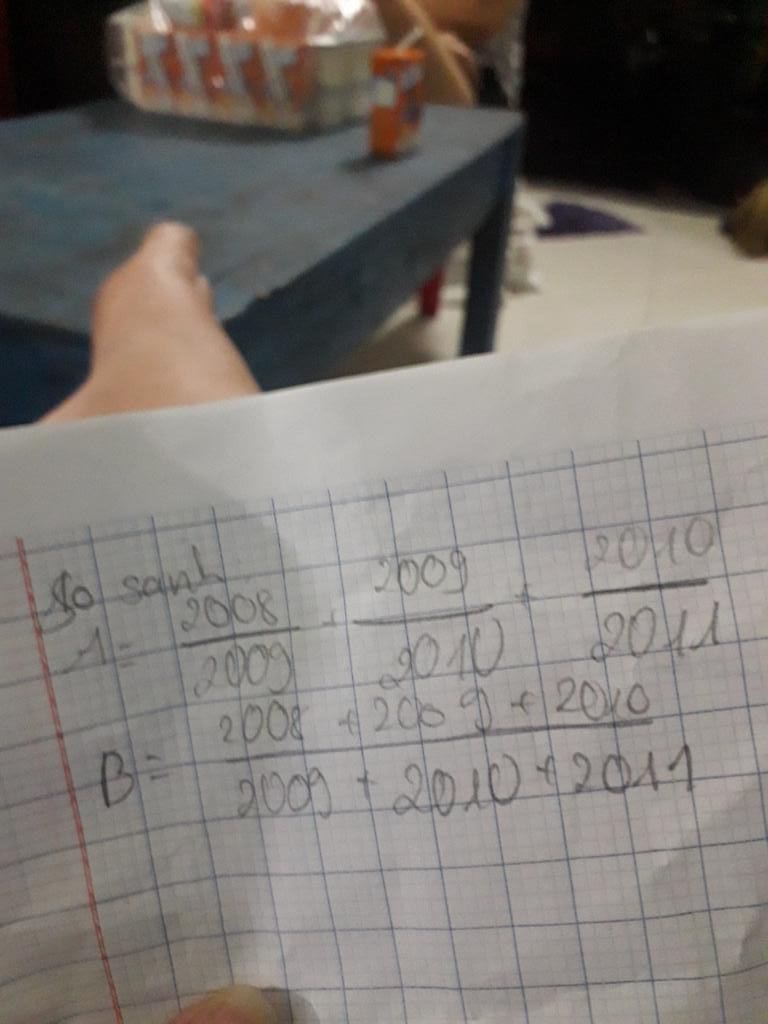 So sanh
A = 2008/2009 + 2009/2010 + 2010/2011
B = 2008 + 2009 + 2010 / 2009 + 2010 + 2011